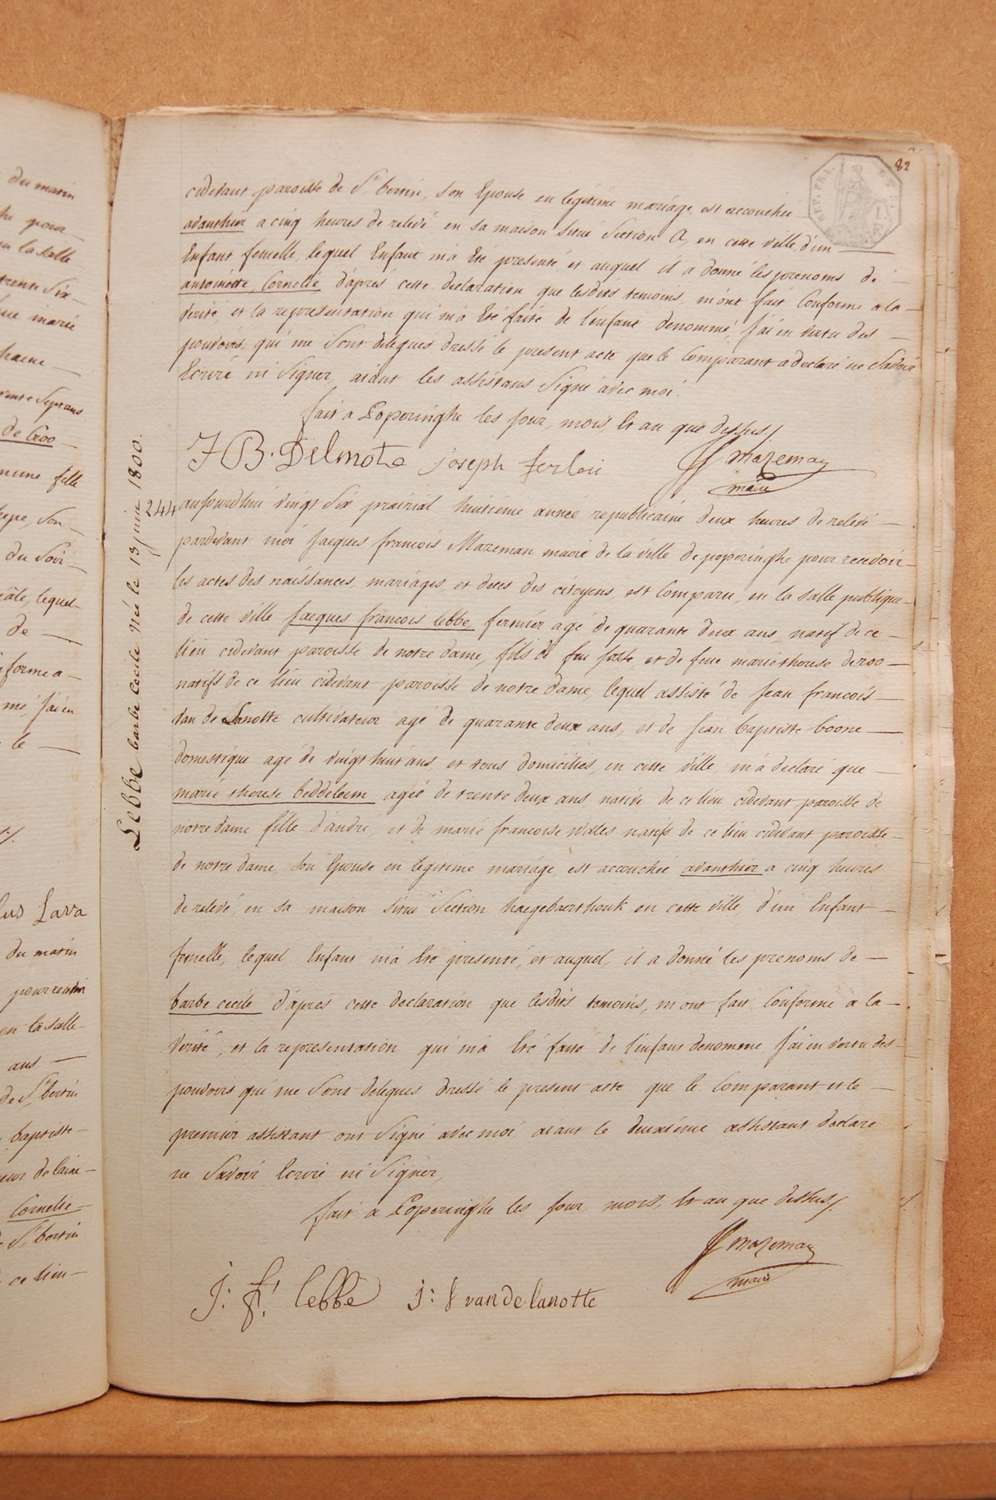 du matin
pour
en la salle
trente six
marie
trente sept ans
de Croo
fille
son
du soir
lequel
de
conforme a
j'ai en
le
Lava
du matin
pour recevoir
en la salle
ans
de St bertin
baptiste
de laine
Cornelie
St bertin
ce lieu
82
cidevant paroisse de St bertin, son Epouse en legitime mariage, est accouchée
avanthier a cinq heures de relevé en sa maison situe Section A, en cette ville d'un
Enfant femelle, lequel Enfant m'a été presenté et auquel il a donné les prenoms de
antoinette Cornelie d'après cette declaration que lesdits temoins, m'ont fait Conforme a la
verité, et la representation qui m'a été faite de l'enfant denommé, J'ai en vertu des
pouvoirs qui me Sont delegues dressé le present acte que le Comparant a declaré ne Savoir
Ecrire ni Signer, aiant les assistans Signé avec moi.
fait a Poperinghe les jour, mois, Et an que dessus
J B. Delmote joseph
Mazeman
maire
Lebbe barbe cecile née le 13 juin 1800.
244
aujourdhui vingt Six prairial huitieme année republicaine deux heures de relevé
pardevant moi Jacques francois Mazeman maire de la ville de poperinghe pour recevoir
les actes des naissances, mariages et deces des citoyens, est Comparu, en la salle publique
de cette ville Jacques francois Lebbe, fermier agé de quarante deux ans, natif de ce
lieu cidevant paroisse de notre dame, fils de feu et de feue marie therese deroo
natifs de ce lieu cidevant paroisse de notre dame, lequel assisté de Jean francois
van de Lanotte cultivateur agé de quarante deux ans, et de Jean baptiste boone
domestique agé de vingt huit ans et tous domiciliés, en cette ville, m'a declaré que
marie therese agée de trente deux ans native de ce lieu cidevant paroisse de
notre dame fille d'andré, et de marie francoise natifs de ce lieu cidevant paroisse
de notre dame, son Epouse en legitime mariage, est accouchée avanthier a cinq heures
de relevé en sa maison situé Section en cette ville d'un Enfant
femelle, lequel Enfant m'a été presenté, et auquel il a donné les prenoms de
barbe cecile d'après cette declaration que lesdits temoins, m'ont fait Conforme a la
verité, et la representation qui m'a été faite de l'enfant denommé J'ai en vertu des
pouvoirs qui me Sont delegues dressé le present acte que le Comparant et le
premier assistant ont Signé avec moi aiant le deuxième assistant declaré
ne Savoir Ecrire ni Signer,
fait a Poperinghe les jour, mois, Et an que dessus
Mazeman
maire
J: f: lebbe J: f vandelanotte